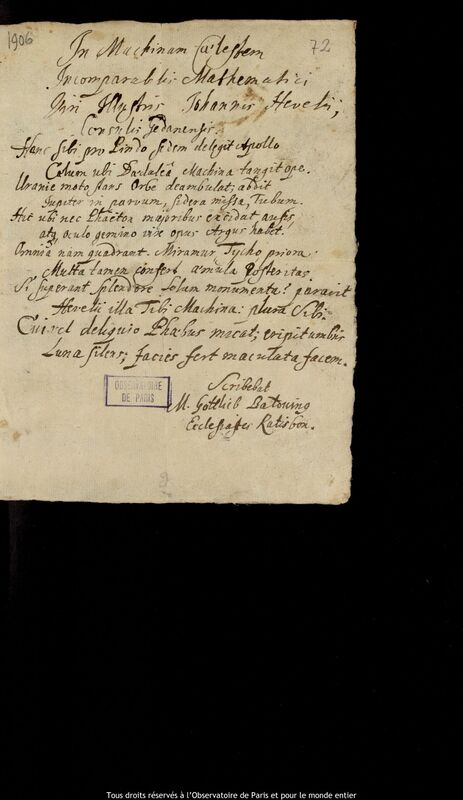 1906
72
In Machinam Cœlestem
Incomparabilis Mathematici
Viri Illustris Johannis Hevelii,
Consulis Gedanensis.
Hanc sibi pro Pindo sedem delegit Apollo
Cœlum ubi Dædaleâ Machina tangit ope.
Uranie moto stans Orbe deambulat; abdit
Jupiter in parvum, sidera missa, Tubum.
Hic ubi nec Phaëton majoribus excidat ausis
atq, oculo gemino vix opus Argus habet.
Omnia nam quadrant. Miramur, Tycho priora:
Multa tamen confert æmula Posteritas.
Si superant splendore Solum monumenta? paravit
Hevelii illa Tibi Machina: plura Sibi.
Cui vel deliquio Phœbus macat; eripit umbris
Luna silens; facies fert maculata facem.
Scribebat
M. Gottlieb Balduing
Ecclesiastes Ratisbon.
OBSERVATOIRE
DE PARIS
9
Tous droits réservés à l'Observatoire de Paris et pour le monde entier